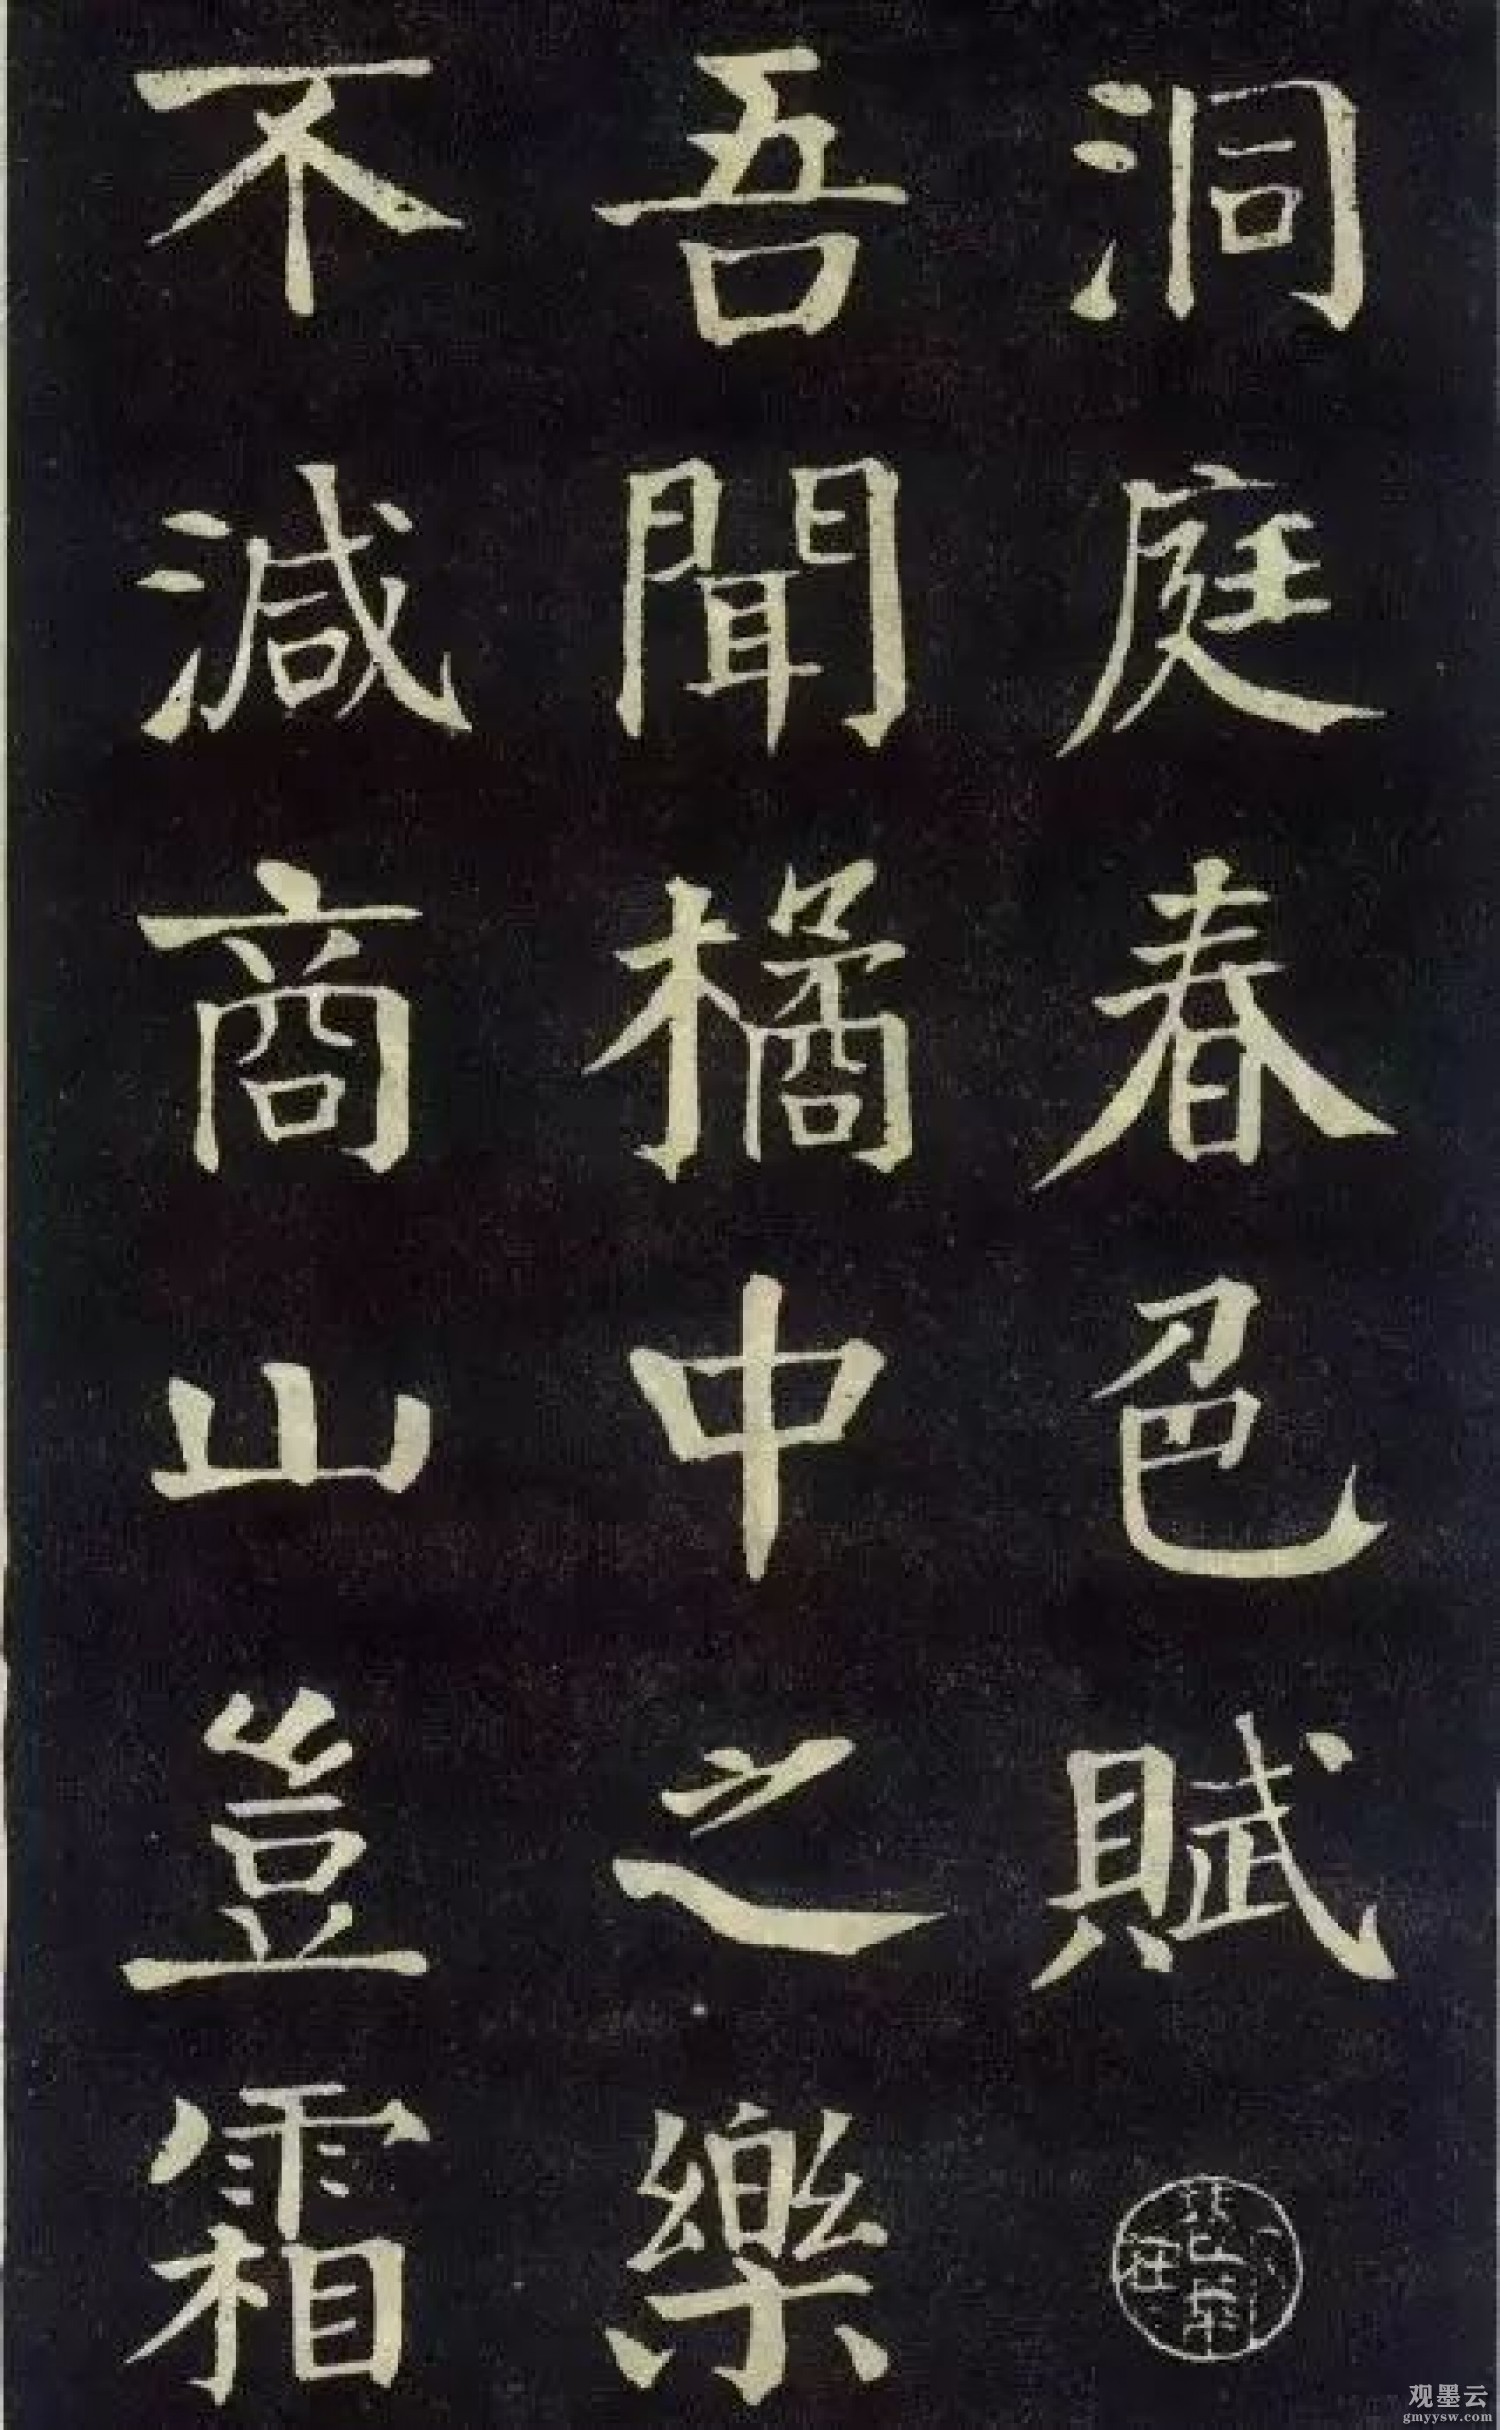 洞庭春色賦
吾聞橘中之樂
不減商山豈霜
观墨云
gmyysw.com